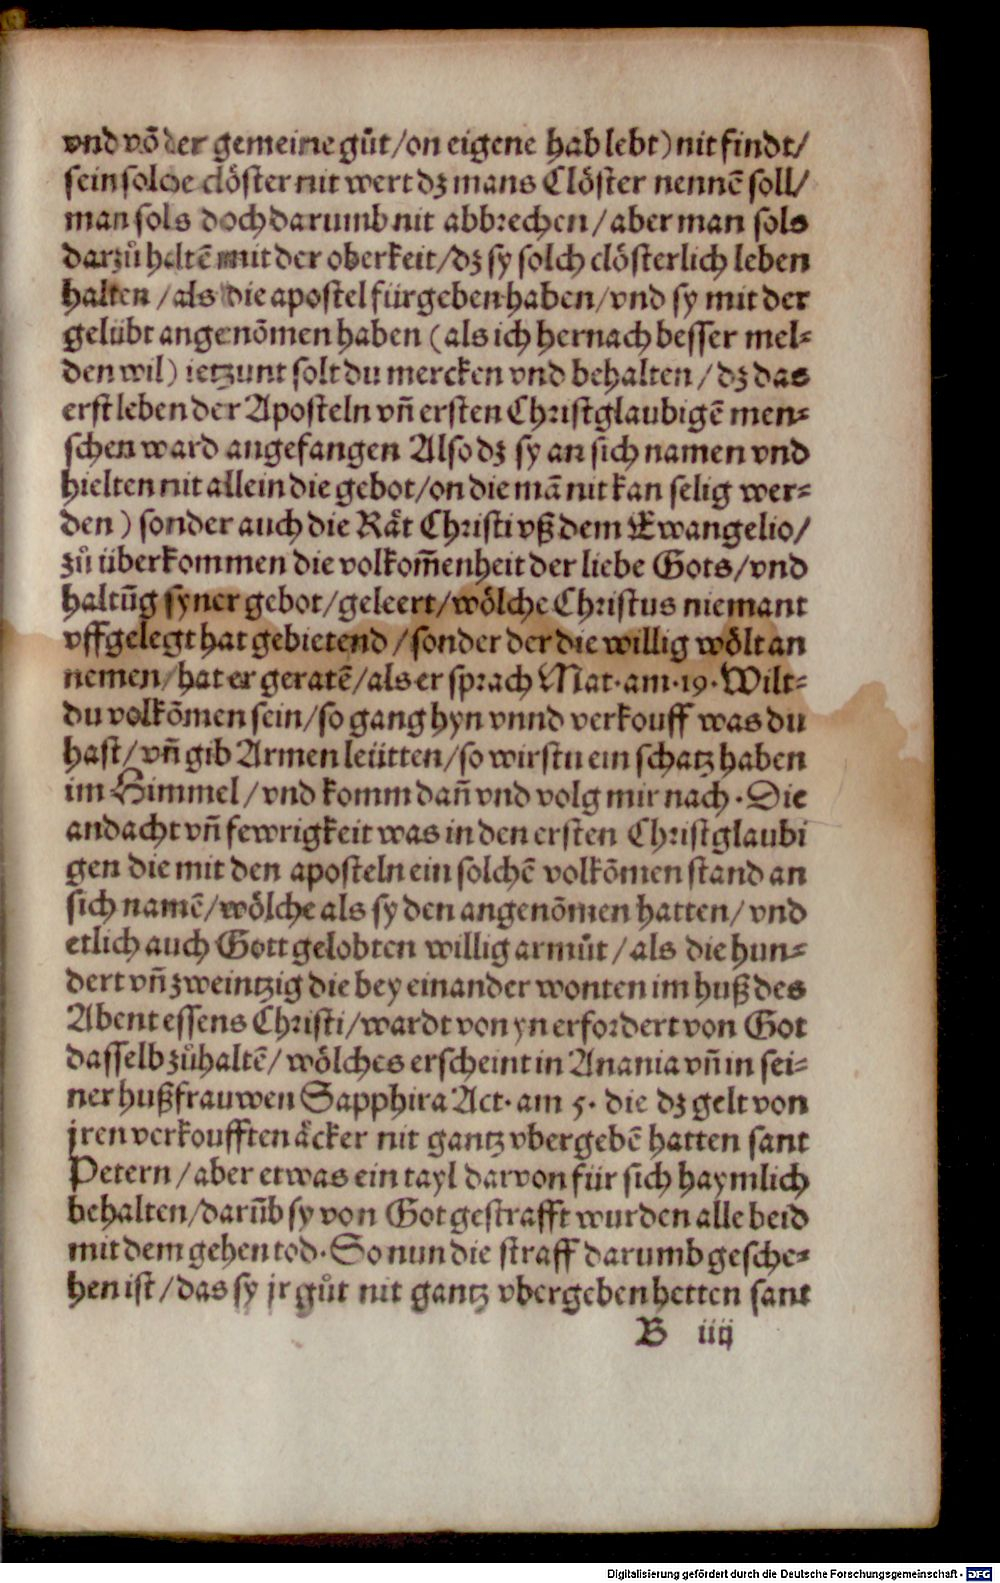 vnd võ der gemeine gůt/on eigene hab lebt) nit findt/
sein solche clöster nit wert dz mans Clöster nennẽ soll/
man sols doch darumb nit abbrechen/aber man sols
darzů haltẽ mit der oberkeit/dz sy solch clösterlich leben
halten/als die apostel fürgeben haben/vnd sy mit der
gelübt angenõmen haben (als ich hernach besser mel⸗
den wil) ietzunt solt du mercken vnd behalten/dz das
erst leben der Aposteln vñ ersten Christglaubigẽ men⸗
schen ward angefangen Also dz sy an sich namen vnd
hielten nit allein die gebot/on die mã nit kan selig wer⸗
den) sonder auch die Rät Christi vß dem Ewangelio/
zů überkommen die volkom̃enheit der liebe Gots/vnd
haltũg syner gebot/geleert/wölche Christus niemant
vffgelegt hat gebietend/sonder der die willig wölt an
nemen/hat er geratẽ/als er sprach Mat. am. 19. Wilt⸗
du volkõmen sein/so gang hyn vnnd verkouff was du
hast/vñ gib Armen leütten/so wirstu ein schatz haben
im Himmel/vnd komm dañ vnd volg mir nach. Die
andacht vñ fewrigkeit was in den ersten Christglaubi
gen die mit den aposteln ein solchẽ volkõmen stand an
sich namẽ/wölche als sy den angenõmen hatten/vnd
etlich auch Gott gelobten willig armůt/als die hun⸗
dert vñ zweintzig die bey einander wonten im huß des
Abent essens Christi/wardt von yn erfordert von Got
dasselb zůhaltẽ/wölches erscheint in Anania vñ in sei⸗
ner hußfrauwen Sapphira Act. am 5. die dz gelt von
jren verkoufften äcker nit gantz vbergebẽ hatten sant
Petern/aber etwas ein tayl darvon für sich haymlich
behalten/darũb sy von Got gestrafft wurden alle beid
mit dem gehen tod. So nun die straff darumb gesche⸗
hen ist/das sy jr gůt nit gantz vbergeben hetten sant
B iiij
Digitalisierung gefördert durch die Deutsche Forschungsgemeinschaft - DFG